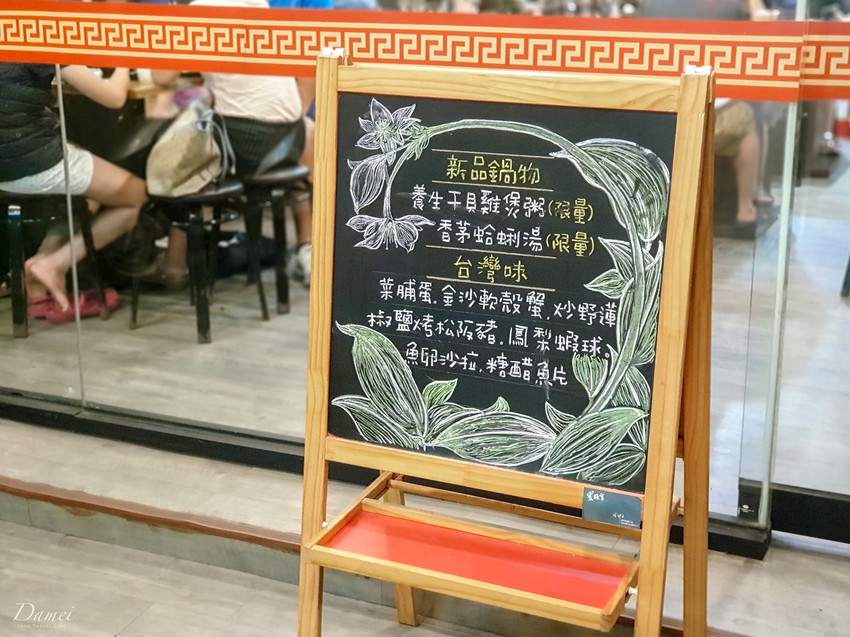 新品鍋物
養生干貝雞煲粥(限量)
香茅蛤蜊湯(限量)
台灣味
菜脯蛋.金沙軟殼蟹.炒野蓮
椒鹽烤松阪豬.鳳梨蝦球.
魚卵沙拉.糖醋魚片
Damei